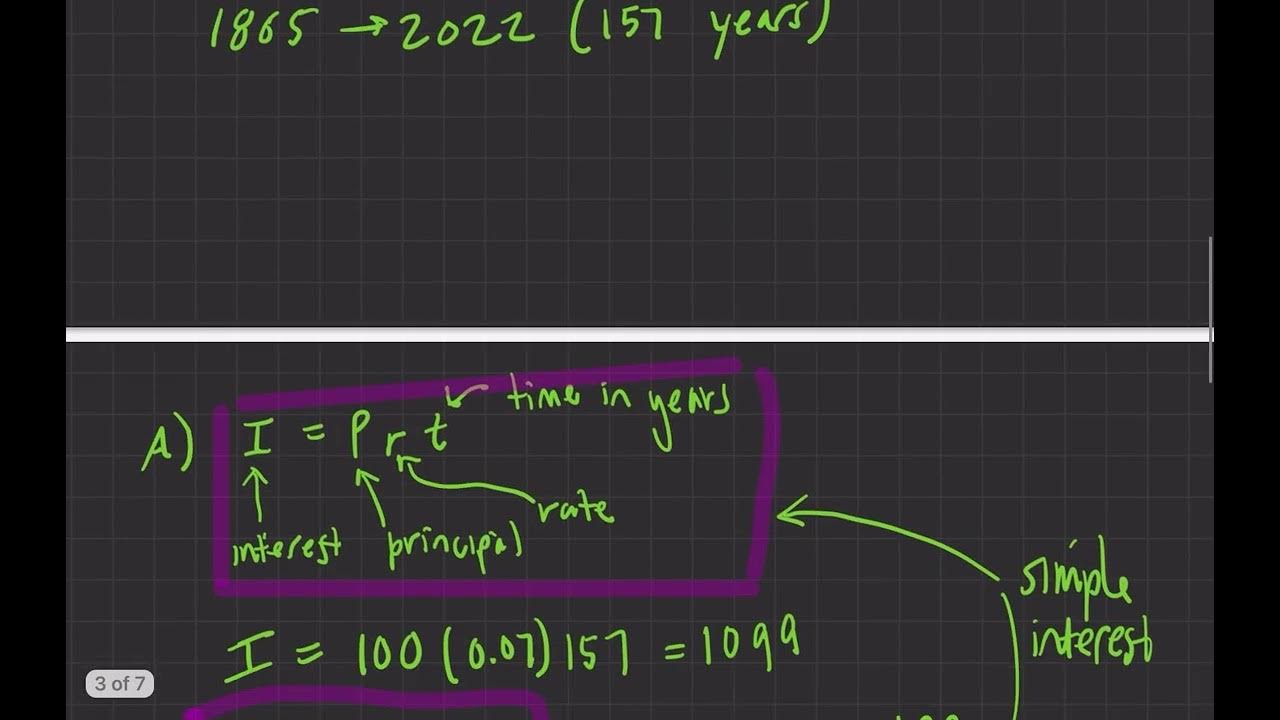 1865 → 2022 (157 years)
A) I = P r t ← time in years
rate
interest principal
simple
interest
I = 100 (0.07) 157 = 1099
3 of 7